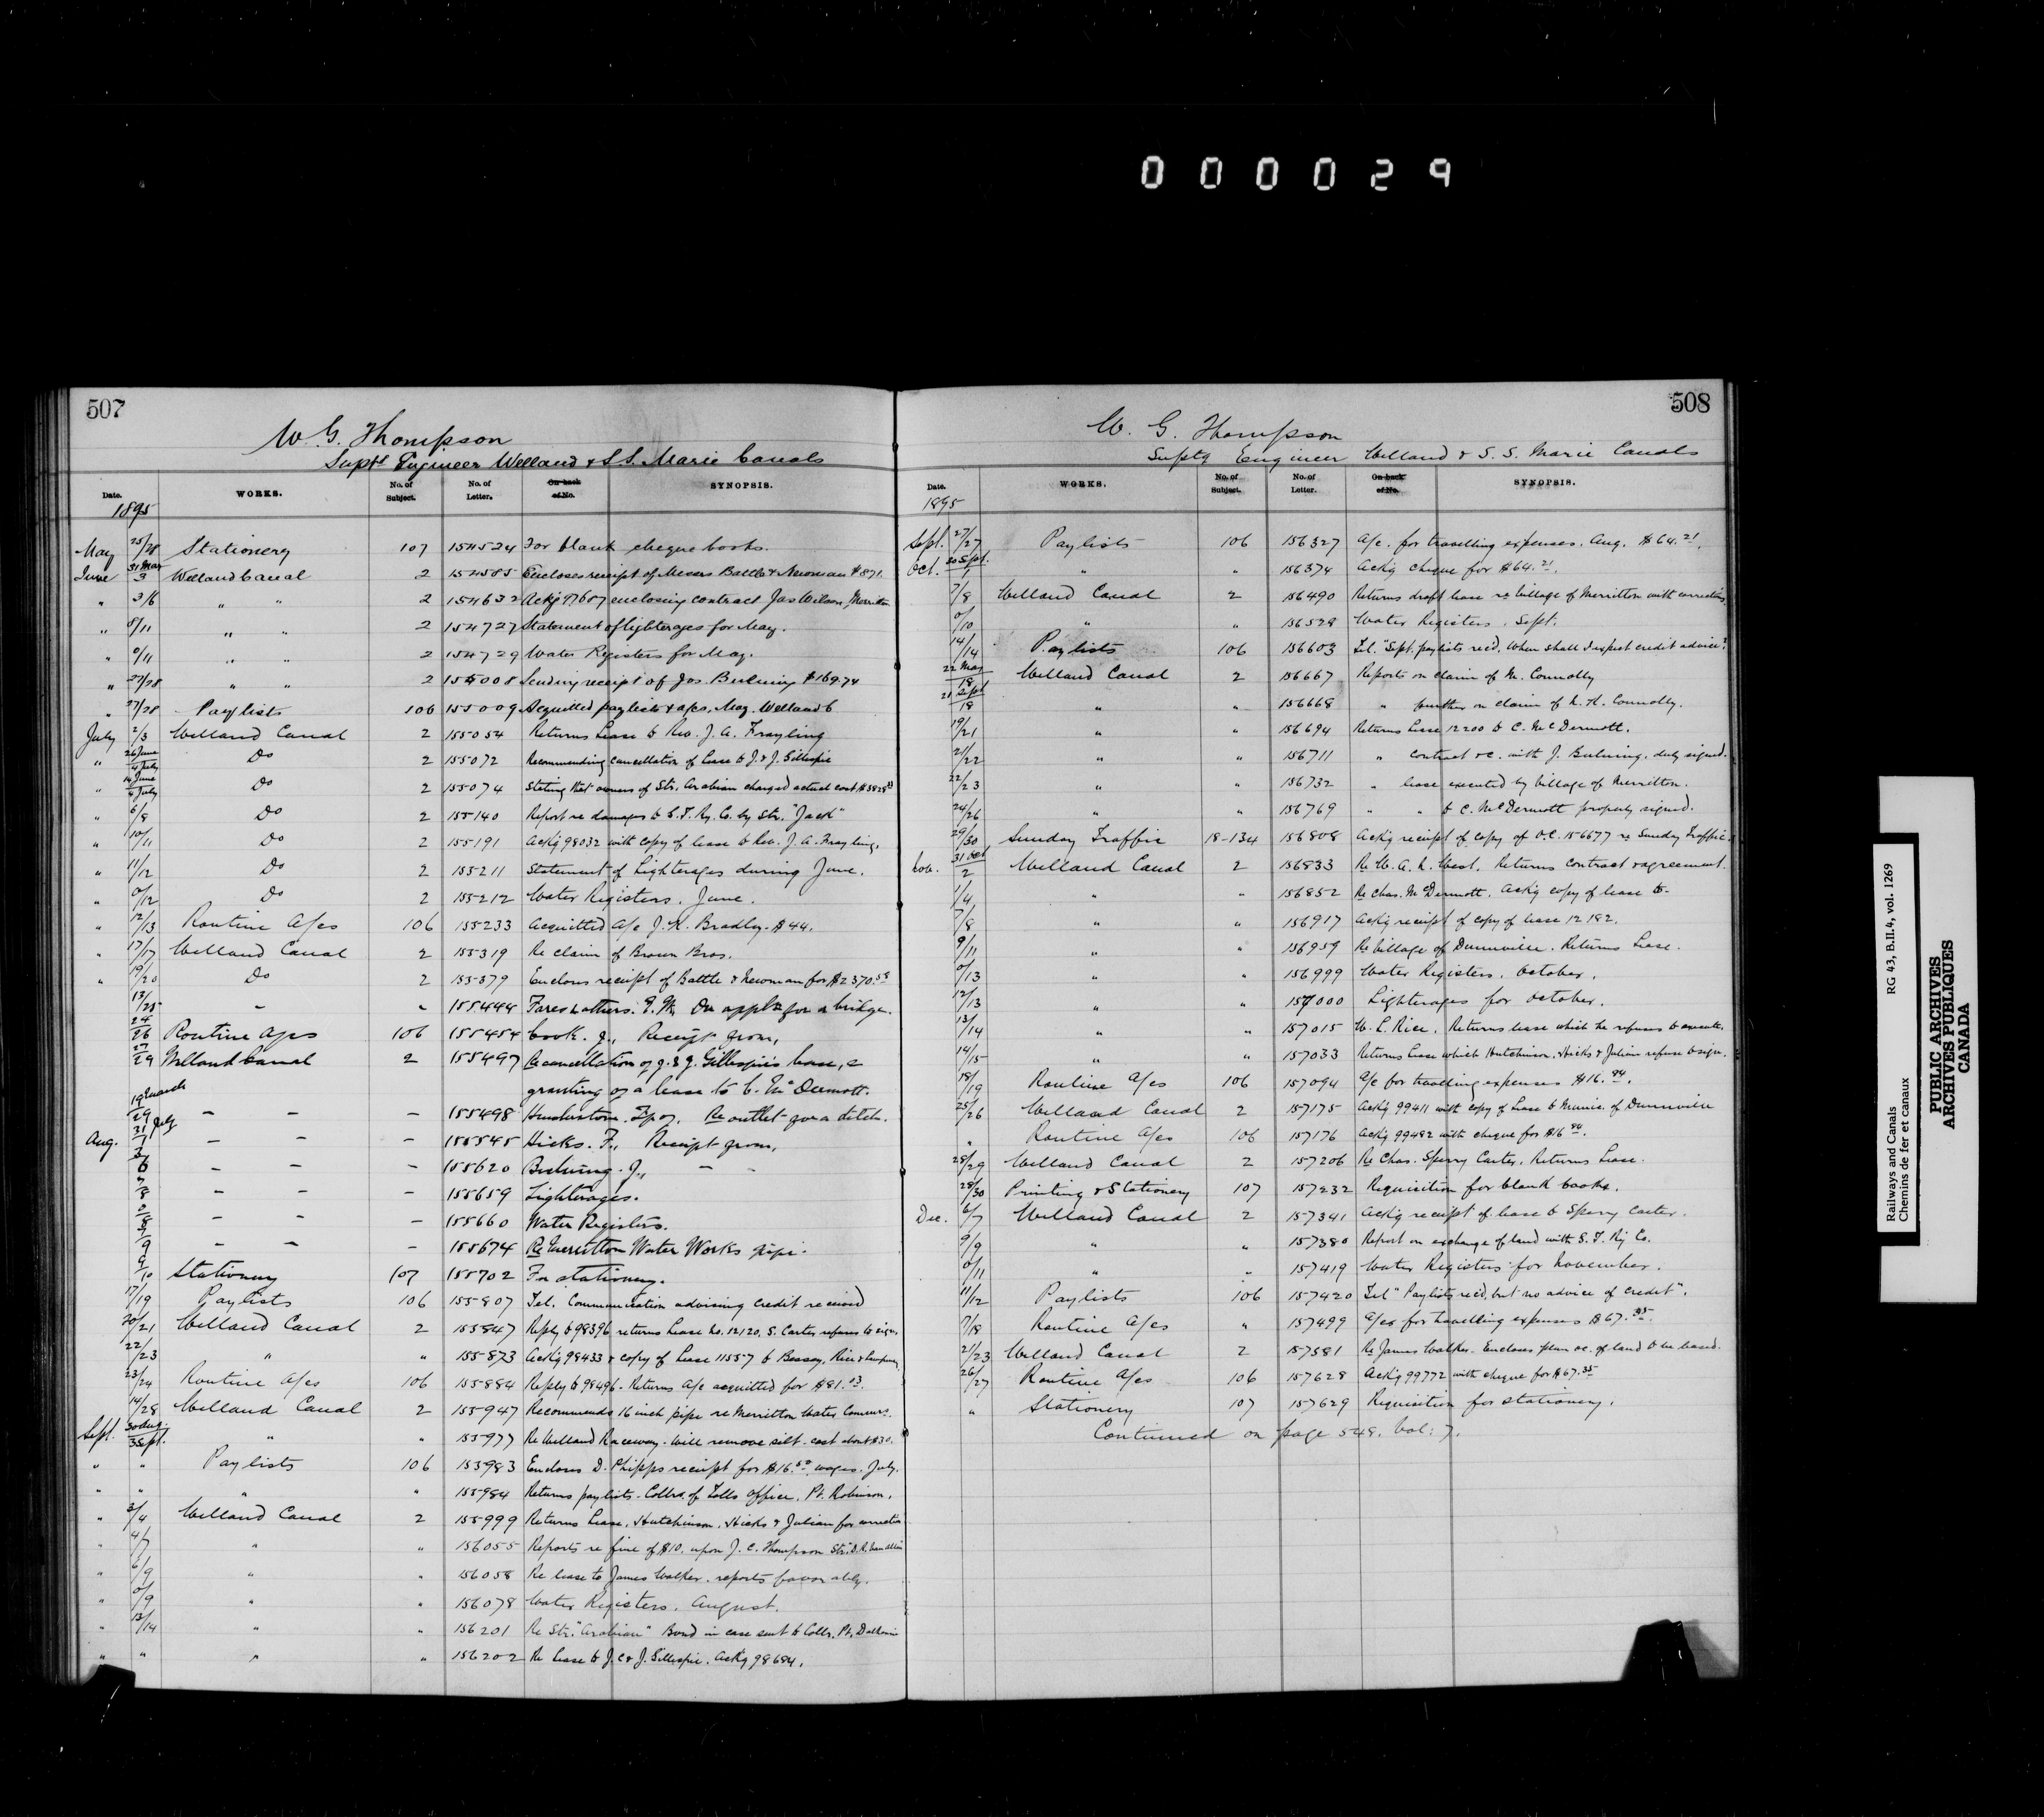 000029
507
W. G. Thompson
Supt. Engineer Welland & S.S. Marie Canals
Date. WORKS. No. of Subject. No. of Letter. On back of No. SYNOPSIS.
1895
May 25/28 Stationery 107 154524 For blank cheque books.
June 31 May/3 Welland Canal 2 154585 Encloses receipt of Messrs Battle & Newman $871.
" 3/6 " " 2 154632 Ackg 97607 enclosing contract Jas Wilson, Merritton
" 8/11 " " 2 154727 Statement of lighterages for May.
" 0/11 " " 2 154729 Water Registers for May.
" 27/28 " " 2 155008 Sending receipt of Jos. Buhning $169.74
" 27/28 Paylists 106 155009 Acquitted paylists & a/cs, May. Welland C
July 2/3 Welland Canal 2 155054 Returns Lease to Rev. J. A. Frayling
" 26 June/4 July Do 2 155072 Recommending cancellation of Lease to J. & J. Gillespie
" 14 June/4 July Do 2 155074 Stating that owners of Str. Arabian charged actual cost
" 6/8 Do 2 155140 Report re damages to G.T. Ry. Co. by Str. "Jack"
" 10/11 Do 2 155191 Ackg 98032 with copy of lease to Rev. J. A. Frayling.
" 11/12 Do 2 155211 Statement of Lighterages during June.
" 0/12 Do 2 155212 Water Registers. June.
" 12/13 Routine A/cs 106 155233 Acquitted A/c J. K. Bradley. $44.
" 17/17 Welland Canal 2 155319 Re claim of Brown Bros.
" 19/20 Do 2 155379 Encloses receipt of Battle & Newman for $2370.58
13/25 - " 155444 Fares & others. On appln for a bridge.
24/26 Routine a/cs 106 155454 Cook. J., Receipt from,
27/29 Welland Canal 2 155497 Re cancellation of J. & J. Gillespie's lease, &
granting of a lease to C. McDermott.
19 March/29 - - - 155498 Humberstone. Tp of. Re outlet for a ditch.
Aug. 31 July/1 - - - 155545 Hicks. F., Receipt from,
3/6 - - - 155620 Buhning. J., - -
7/8 - - - 155659 Lighterages.
0/8 - - - 155660 Water Registers.
7/9 - - - 155674 Re Merritton Water Works pipe.
9/10 Stationery 107 155702 For stationery.
17/19 Paylists 106 155807 Tel. Communication advising credit received
20/21 Welland Canal 2 155847 Reply to 98396 returns Lease No. 12120. S. Carter refuses to sign
22/23 " " 155873 Ackg 98433 & copy of Lease 11557 to Beasey, Rice &
23/24 Routine A/cs 106 155884 Reply to 98496. Returns A/c acquitted for $81.03.
14/28 Welland Canal 2 155947 Recommends 16 inch pipe re Merritton Water Commrs.
Sept. 30 Aug./3 Sept. " " 155977 Re Welland Raceway. Will remove silt. cost about $30.
" " Paylists 106 155983 Encloses D. Phipps receipt for $16.50 wages. July.
" " " " 155984 Returns paylists. Collr. of Tolls office. Pt. Robinson.
" 3/4 Welland Canal 2 155999 Returns Lease, Hutchinson, Hicks & Julian for correction
" 4/7 " " 156055 Reports re fine of $10. upon J. C. Thompson Str.
" 6/9 " " 156058 Re lease to James Walker. reports favorably.
" 0/9 " " 156078 Water Registers. August.
" 13/14 " " 156201 Re Str. "Arabian" Bond in case sent to Collr. Pt. Dalhousie
" " " " 156202 Re Lease to J. C & J. Gillespie. Ackg 98684.
508
W. G. Thompson
Suptg Engineer Welland & S. S. Marie Canals
Date. WORKS. No. of Subject. No. of Letter. On back of No. SYNOPSIS.
1895
Sept. 27/27 Paylists 106 156327 A/c. for travelling expenses. Aug. $64.21.
Oct. 30 Sept./1 " " 156374 Ackg cheque for $64.21.
7/8 Welland Canal 2 156490 Returns draft lease re Village of Merritton with corrections
0/10 " " 156529 Water Registers. Sept.
14/14 Paylists 106 156603 Tel. "Sept. paylists recd. When shall I expect credit advice?
22 May/18 Welland Canal 2 156667 Reports on claim of M. Connolly
21 Sept/18 " " 156668 " further on claim of N. K. Connolly.
19/21 " " 156694 Returns Lease 12200 to C. McDermott.
21/22 " " 156711 " contract &c. with J. Buhning, duly signed.
22/23 " " 156732 " lease executed by Village of Merritton.
24/26 " " 156769 " " to C. McDermott properly signed.
29/30 Sunday Traffic 18-134 156808 Ackg receipt of copy of O.C. 156677 re Sunday Traffic.
Nov. 31 Oct/2 Welland Canal 2 156833 Re W. A. R. West. Returns contract & agreement.
1/4 " " 156852 Re Chas. McDermott. Ackg copy of lease to-
7/8 " " 156917 Ackg receipt of copy of lease 12182.
9/11 " " 156959 Re Village of Dunnville. Returns Lease.
0/13 " " 156999 Water Registers. October.
12/13 " " 157000 Lighterages for October.
13/14 " " 157015 W. L. Rice. Returns lease which he refuses to execute.
14/15 " " 157033 Returns Lease which Hutchinson, Hicks & Julian refuse to sign.
18/19 Routine A/cs 106 157094 A/c for travelling expenses $16.94.
25/26 Welland Canal 2 157175 Ackg 99411 with copy of Lease to Munic. of Dunnville
" Routine A/cs 106 157176 Ackg 99482 with cheque for $16.94.
28/29 Welland Canal 2 157206 Re Chas. Sperry Carter. Returns Lease.
28/30 Printing & Stationery 107 157232 Requisition for blank books.
Dec. 6/7 Welland Canal 2 157341 Ackg receipt of lease to Sperry Carter.
9/9 " " 157380 Report on exchange of land with G. T. Ry Co.
0/11 " " 157419 Water Registers for November.
11/12 Paylists 106 157420 Tel "Paylists recd, but no advice of credit".
7/18 Routine A/cs " 157499 A/cs for travelling expenses $67.35.
21/23 Welland Canal 2 157581 Re James Walker. Encloses plan &c. of land to be leased.
26/27 Routine A/cs 106 157628 Ackg 99772 with cheque for $67.35
" Stationery 107 157629 Requisition for stationery.
Continued on page 548. Vol: 7.
Railways and Canals RG 43, B.II.4, vol. 1269
Chemins de fer et canaux
PUBLIC ARCHIVES
ARCHIVES PUBLIQUES
CANADA